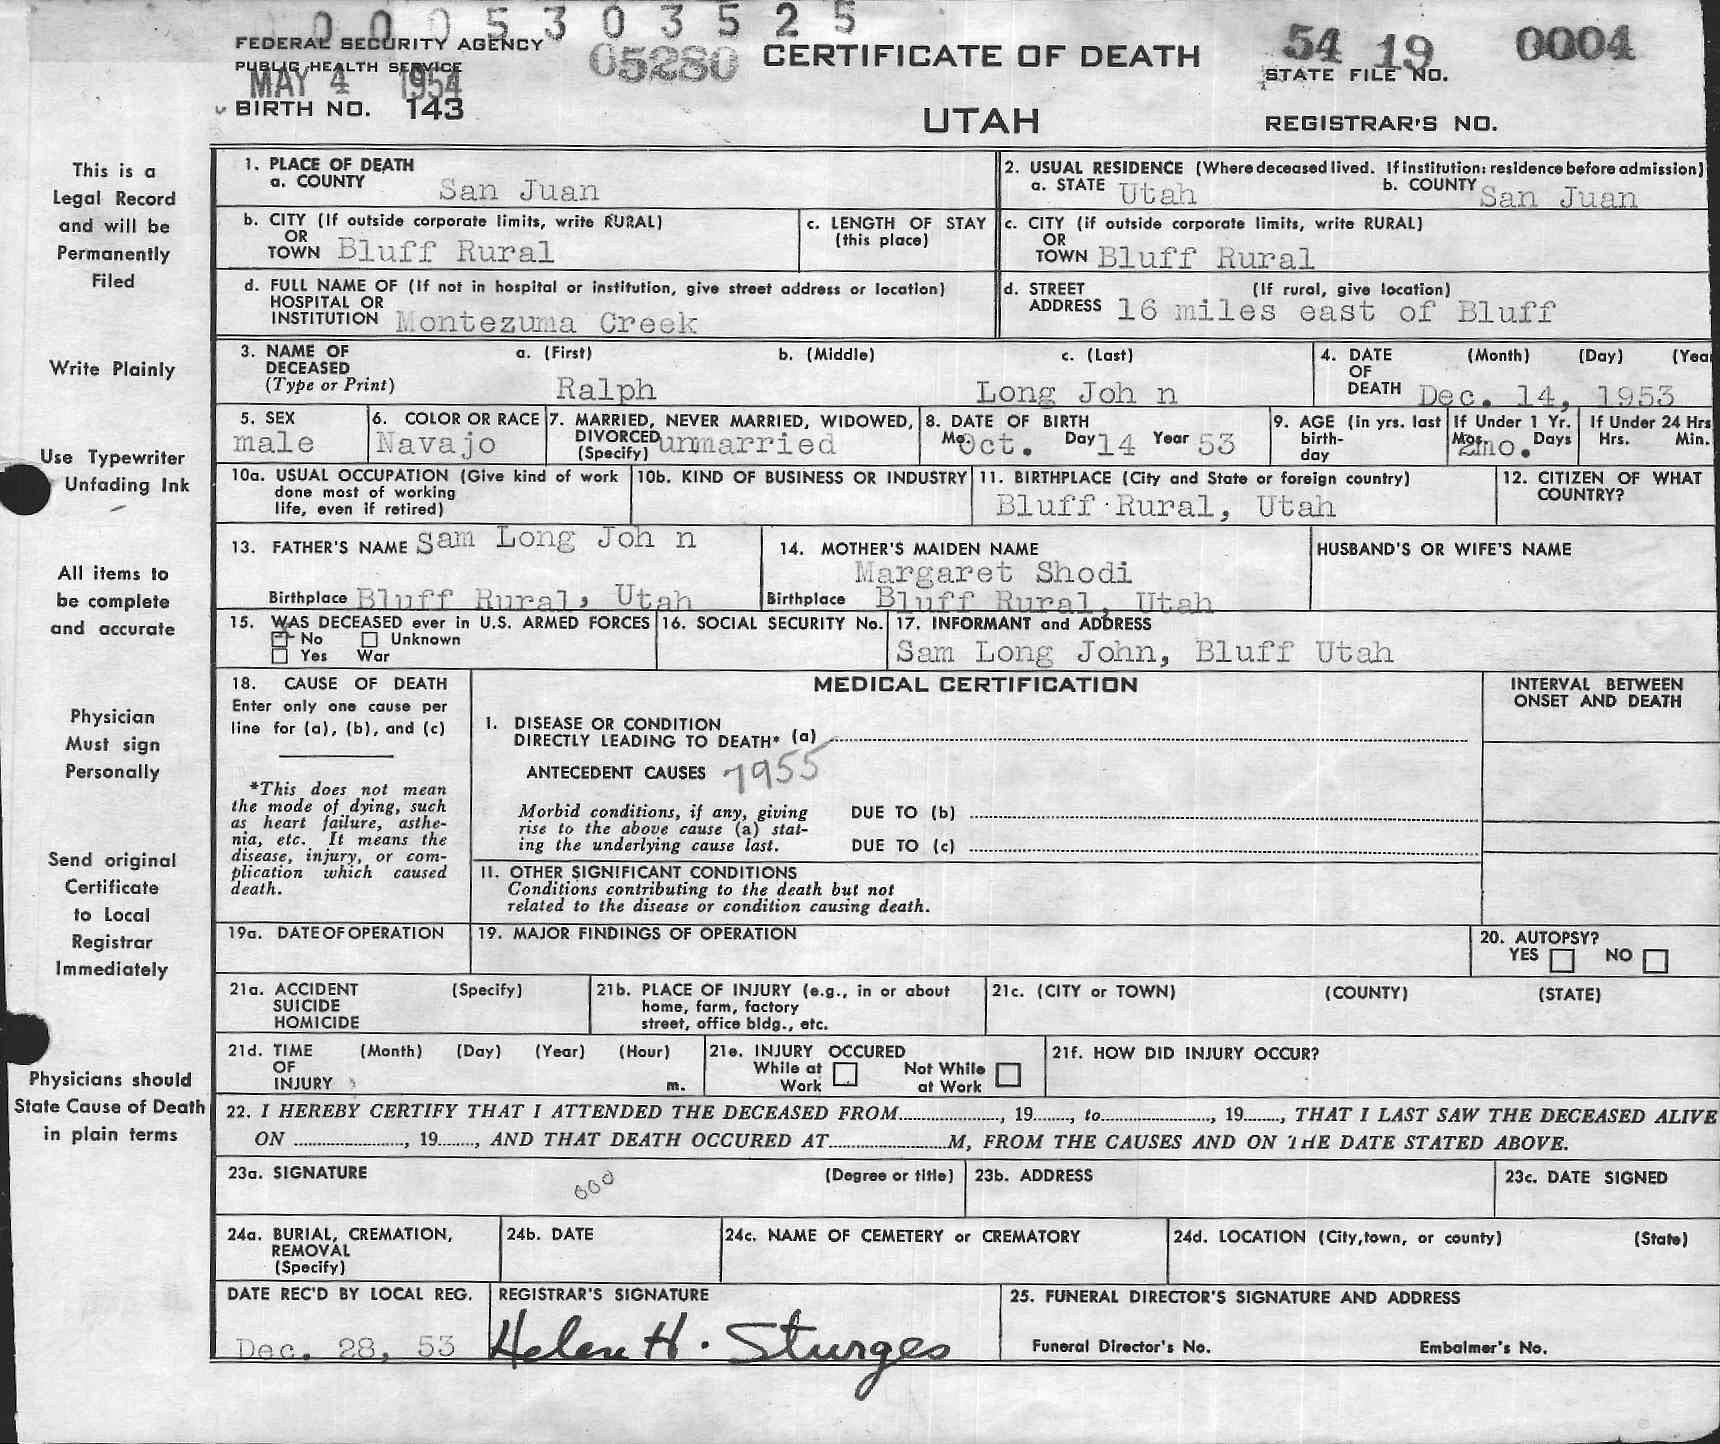 0 0 0 5 3 0 3 5 2 5
FEDERAL SECURITY AGENCY
PUBLIC HEALTH SERVICE
MAY 4 1954
BIRTH NO. 143
05280
CERTIFICATE OF DEATH
UTAH
54 19 0004
STATE FILE NO.
REGISTRAR'S NO.
This is a
Legal Record
and will be
Permanently
Filed
Write Plainly
Use Typewriter
Unfading Ink
All items to
be complete
and accurate
Physician
Must sign
Personally
Send original
Certificate
to Local
Registrar
Immediately
Physicians should
State Cause of Death
in plain terms
1. PLACE OF DEATH
a. COUNTY San Juan
2. USUAL RESIDENCE (Where deceased lived. If institution: residence before admission)
a. STATE Utah b. COUNTY San Juan
b. CITY (If outside corporate limits, write RURAL)
OR
TOWN Bluff Rural
c. LENGTH OF STAY
(this place)
c. CITY (if outside corporate limits, write RURAL)
OR
TOWN Bluff Rural
d. FULL NAME OF (If not in hospital or institution, give street address or location)
HOSPITAL OR
INSTITUTION Montezuma Creek
d. STREET (If rural, give location)
ADDRESS 16 miles east of Bluff
3. NAME OF a. (First) b. (Middle) c. (Last)
DECEASED
(Type or Print) Ralph Long Joh n
4. DATE (Month) (Day) (Yea
OF
DEATH Dec. 14, 1953
5. SEX
male
6. COLOR OR RACE
Navajo
7. MARRIED, NEVER MARRIED, WIDOWED,
DIVORCED
(Specify) unmarried
8. DATE OF BIRTH
Mo. Oct. Day 14 Year 53
9. AGE (in yrs. last
birth-
day
If Under 1 Yr.
Mos. Days
2mo.
If Under 24 Hrs
Hrs. Min.
10a. USUAL OCCUPATION (Give kind of work
done most of working
life, even if retired)
10b. KIND OF BUSINESS OR INDUSTRY
11. BIRTHPLACE (City and State or foreign country)
Bluff Rural, Utah
12. CITIZEN OF WHAT
COUNTRY?
13. FATHER'S NAME Sam Long Joh n
Birthplace Bluff Rural, Utah
14. MOTHER'S MAIDEN NAME
Margaret Shodi
Birthplace Bluff Rural, Utah
HUSBAND'S OR WIFE'S NAME
15. WAS DECEASED ever in U.S. ARMED FORCES
No Unknown
Yes War
16. SOCIAL SECURITY No.
17. INFORMANT and ADDRESS
Sam Long John, Bluff Utah
18. CAUSE OF DEATH
Enter only one cause per
line for (a), (b), and (c)
*This does not mean
the mode of dying, such
as heart failure, asthe-
nia, etc. It means the
disease, injury, or com-
plication which caused
death.
MEDICAL CERTIFICATION
I. DISEASE OR CONDITION
DIRECTLY LEADING TO DEATH* (a)
ANTECEDENT CAUSES 7955
Morbid conditions, if any, giving
rise to the above cause (a) stat-
ing the underlying cause last.
DUE TO (b)
DUE TO (c)
II. OTHER SIGNIFICANT CONDITIONS
Conditions contributing to the death but not
related to the disease or condition causing death.
INTERVAL BETWEEN
ONSET AND DEATH
19a. DATE OF OPERATION
19. MAJOR FINDINGS OF OPERATION
20. AUTOPSY?
YES NO
21a. ACCIDENT (Specify)
SUICIDE
HOMICIDE
21b. PLACE OF INJURY (e.g., in or about
home, farm, factory
street, office bldg., etc.
21c. (CITY or TOWN) (COUNTY) (STATE)
21d. TIME (Month) (Day) (Year) (Hour)
OF
INJURY m.
21e. INJURY OCCURED
While at Work
Not While at Work
21f. HOW DID INJURY OCCUR?
22. I HEREBY CERTIFY THAT I ATTENDED THE DECEASED FROM............, 19......, to............, 19......, THAT I LAST SAW THE DECEASED ALIVE
ON ............, 19......, AND THAT DEATH OCCURED AT............M, FROM THE CAUSES AND ON THE DATE STATED ABOVE.
23a. SIGNATURE 000 (Degree or title)
23b. ADDRESS
23c. DATE SIGNED
24a. BURIAL, CREMATION,
REMOVAL
(Specify)
24b. DATE
24c. NAME OF CEMETERY or CREMATORY
24d. LOCATION (City,town, or county) (State)
DATE REC'D BY LOCAL REG.
Dec. 28, 53
REGISTRAR'S SIGNATURE
Helen H. Sturges
25. FUNERAL DIRECTOR'S SIGNATURE AND ADDRESS
Funeral Director's No. Embalmer's No.